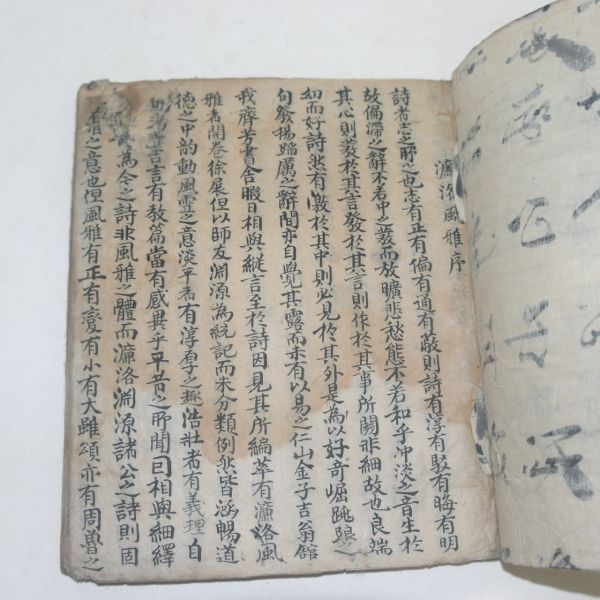 濂洛風雅序
詩者志之所之也志有正有偏有通有蔽則詩有淳有駁有晦有明
故偏滯之辭不若中之發而放曠悲愁態不若和乎冲淡之音生於
其心則發於其言發於其言則作於其事所関非細故也良端
幼而好詩然有激於其中則必見於其外是為以好奇崛跳踉之
句發揚蹈厲之辭間亦自覺其露而未有以易之仁山金子吉翁舘
我齊芳書舍暇日相與縱言至於詩因見其所編萃有濂洛風
雅者開卷徐展但以師友渊源為統記而未分類例然皆涵暢道
德之中韵動風雩之意淡平者有淳厚之趣浩壯者有義理自
言言有教篇當有感異乎平昔之所聞曰相與細繹
為今之詩非風雅之體而濂洛渊源諸公之詩則固
雅之意也但風雅有正有変有小有大雖頌亦有周魯之